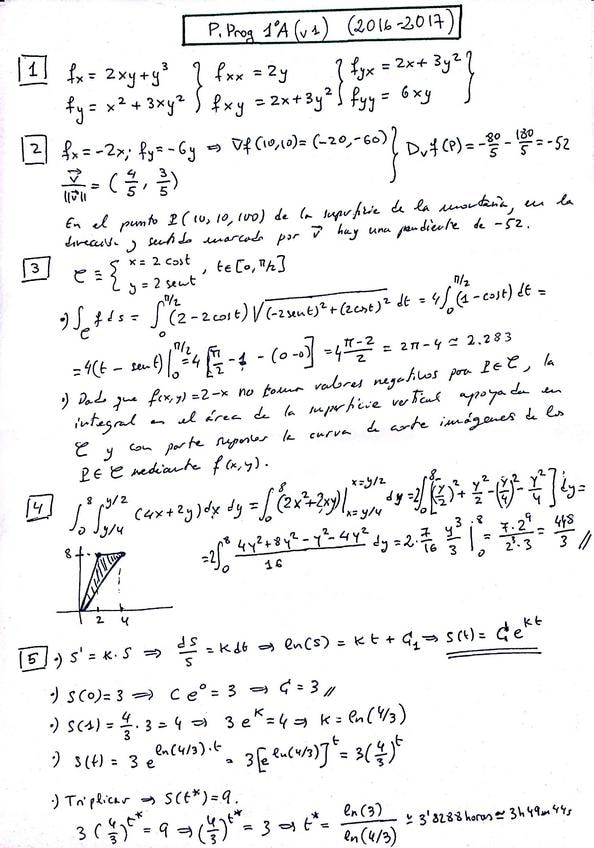 P. Prog 1ºA (v1) (2016-2017)
1 fx = 2xy+y³ } fxx = 2y } fyx = 2x+3y² }
fy = x²+3xy² } fxy = 2x+3y² } fyy = 6xy }
2 fx=-2x; fy=-6y ⇒ ∇f(10,10)=(-20,-60) } Dvf(P)=-80/5 - 180/5 = -52
v⃗/||v⃗|| = (4/5, 3/5)
En el punto P(10,10,100) de la superficie de la montaña, en la
dirección y sentido marcado por v⃗ hay una pendiente de -52.
3 C ≡ { x = 2cost
y = 2sent , t∈[0,π/2]
·) ∫_C f ds = ∫_0^{π/2} (2-2cost) √((-2sent)²+(2cost)²) dt = 4∫_0^{π/2} (1-cost) dt =
=4(t - sent)|_0^{π/2} = 4[π/2 - 1 - (0-0)] = 4 (π-2)/2 = 2π-4 ≃ 2.283
·) Dado que f(x,y)=2-x no toma valores negativos para P∈C, la
integral es el área de la superficie vertical apoyada en
C y con parte superior la curva de corte imágenes de los
P∈C mediante f(x,y).
4 ∫_0^8 ∫_{y/4}^{y/2} (4x+2y)dx dy = ∫_0^8 (2x²+2xy)|_{x=y/4}^{x=y/2} dy = 2∫_0^8 [(y/2)² + y²/2 - (y/4)² - y²/4] dy =
=2∫_0^8 (4y²+8y²-y²-4y²)/16 dy = 2· 7/16 y³/3 |_0^8 = 7·2⁹/2³·3 = 448/3 //
8
2 4
5 ·) S' = K·S ⇒ dS/S = Kdt ⇒ ln(S) = Kt + C₁ ⇒ S(t) = Ce^{Kt}
·) S(0)=3 ⇒ Ce⁰ = 3 ⇒ C = 3 //
·) S(1)= 4/3 · 3 = 4 ⇒ 3e^K = 4 ⇒ K = ln(4/3)
·) S(t) = 3 e^{ln(4/3)·t} = 3[e^{ln(4/3)}]^t = 3(4/3)^t
·) Triplicar ⇒ S(t*)=9.
3(4/3)^{t*} = 9 ⇒ (4/3)^{t*} = 3 ⇒ t* = ln(3)/ln(4/3) ≃ 3'8288 horas ≃ 3h 49m 44s